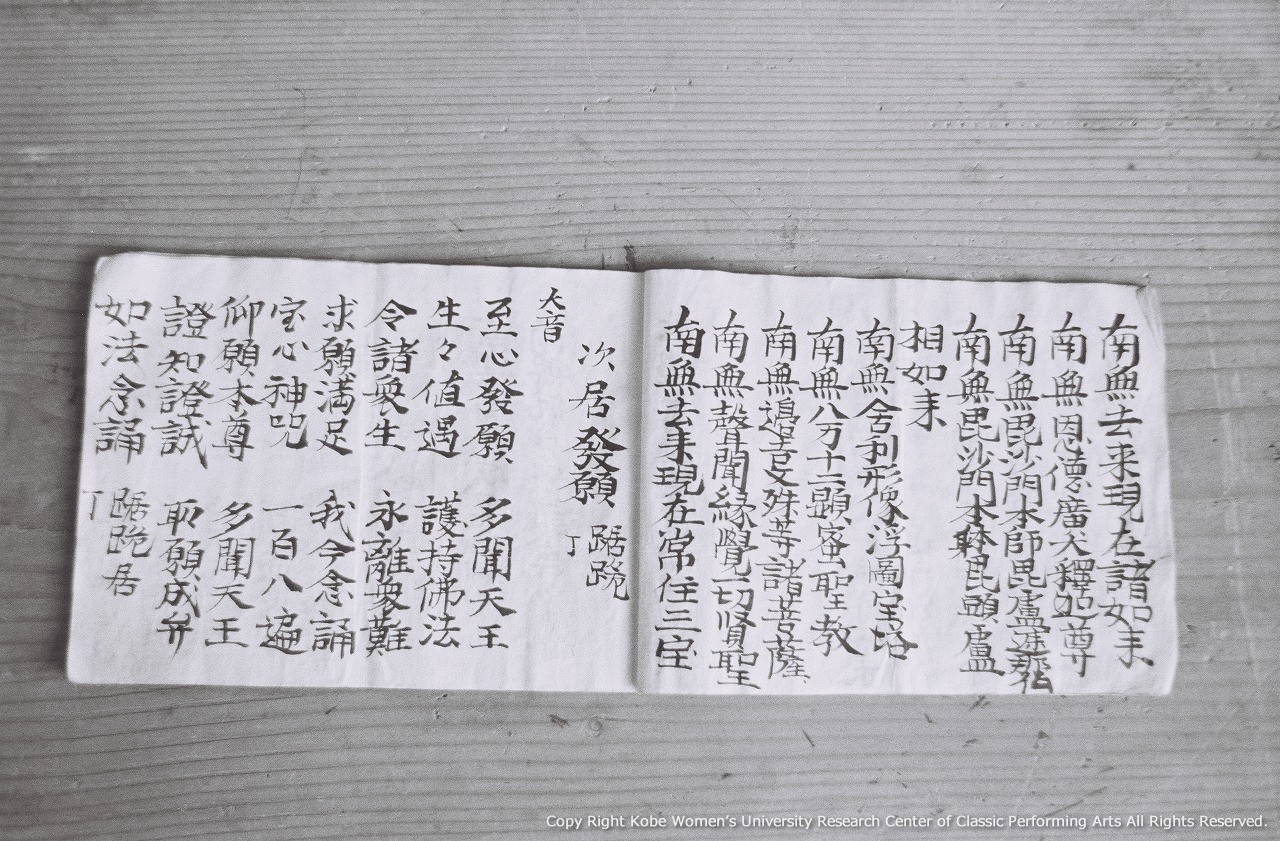 南無去来現在諸如来
南無恩德廣大釋迦尊
南無毘沙門本師毘盧遮那仏
南無毘沙門本躰毘頭盧
相如来
南無舍利形像浮圖宝塔
南無八万十二顕密聖教
南無過吉文殊等諸菩薩
南無聲聞緣覺一切賢聖
南無去来現在常住三宝
次居發願 踞跪
丁
大音
至心發願 多聞天王
生々值遇 護持佛法
令諸衆生 永離衆難
求願満足 我今念誦
宝心神咒 一百八遍
仰願本尊 多聞天王
證知證誠 所願成弁
如法念誦 踞跪居
丁
Copy Right Kobe Women's University Research Center of Classic Performing Arts All Rights Reserved.